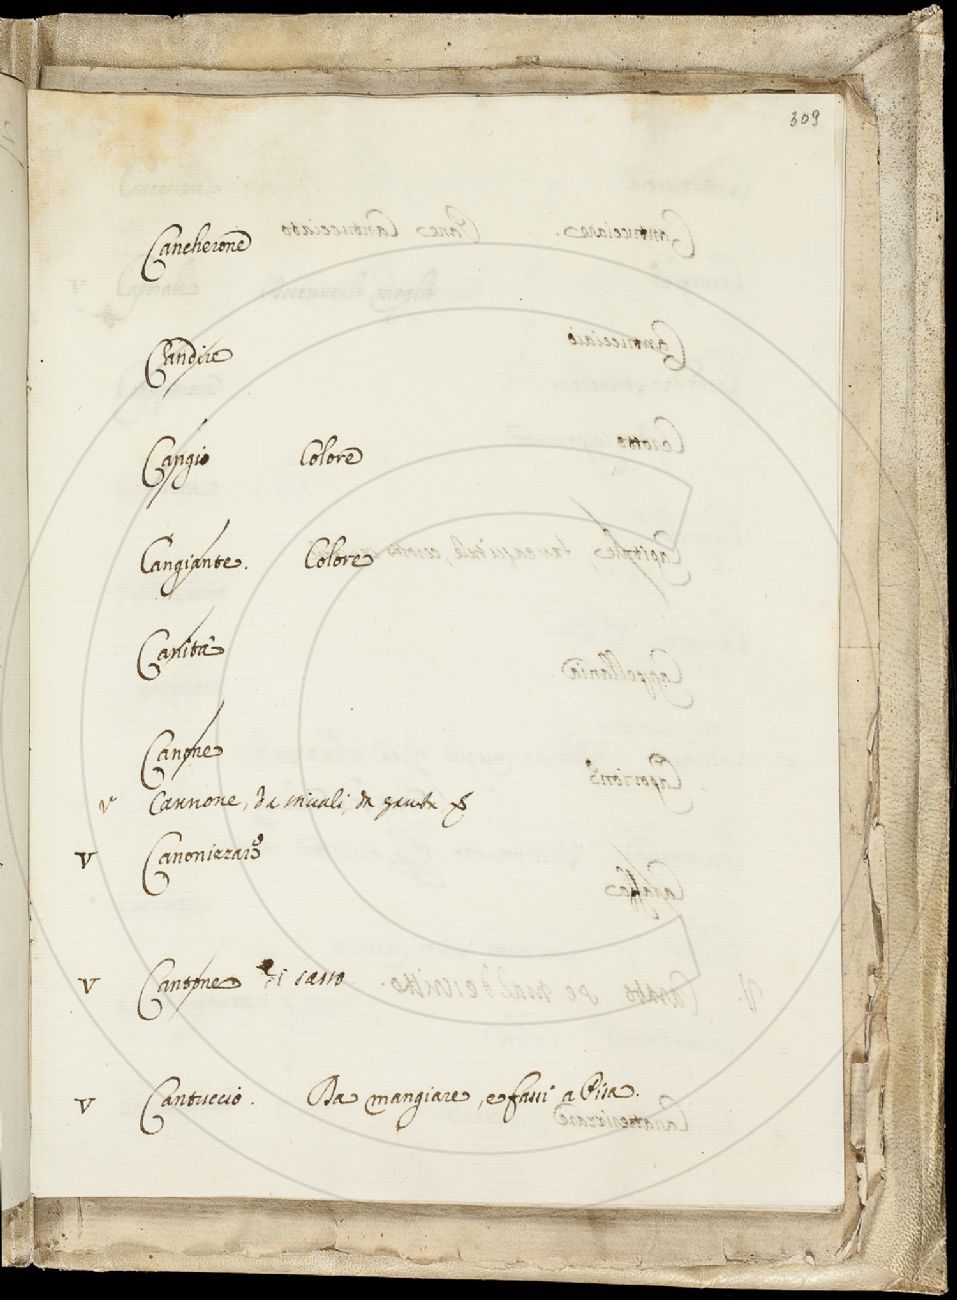 309
Cancherone
Candire
Cangio Colore
Cangiante. Colore
Canità
Canone
v Cannone, da stivali, da
V
V Cantone di sasso
V Cantuccio. Da mangiare, e fassi a Pisa.